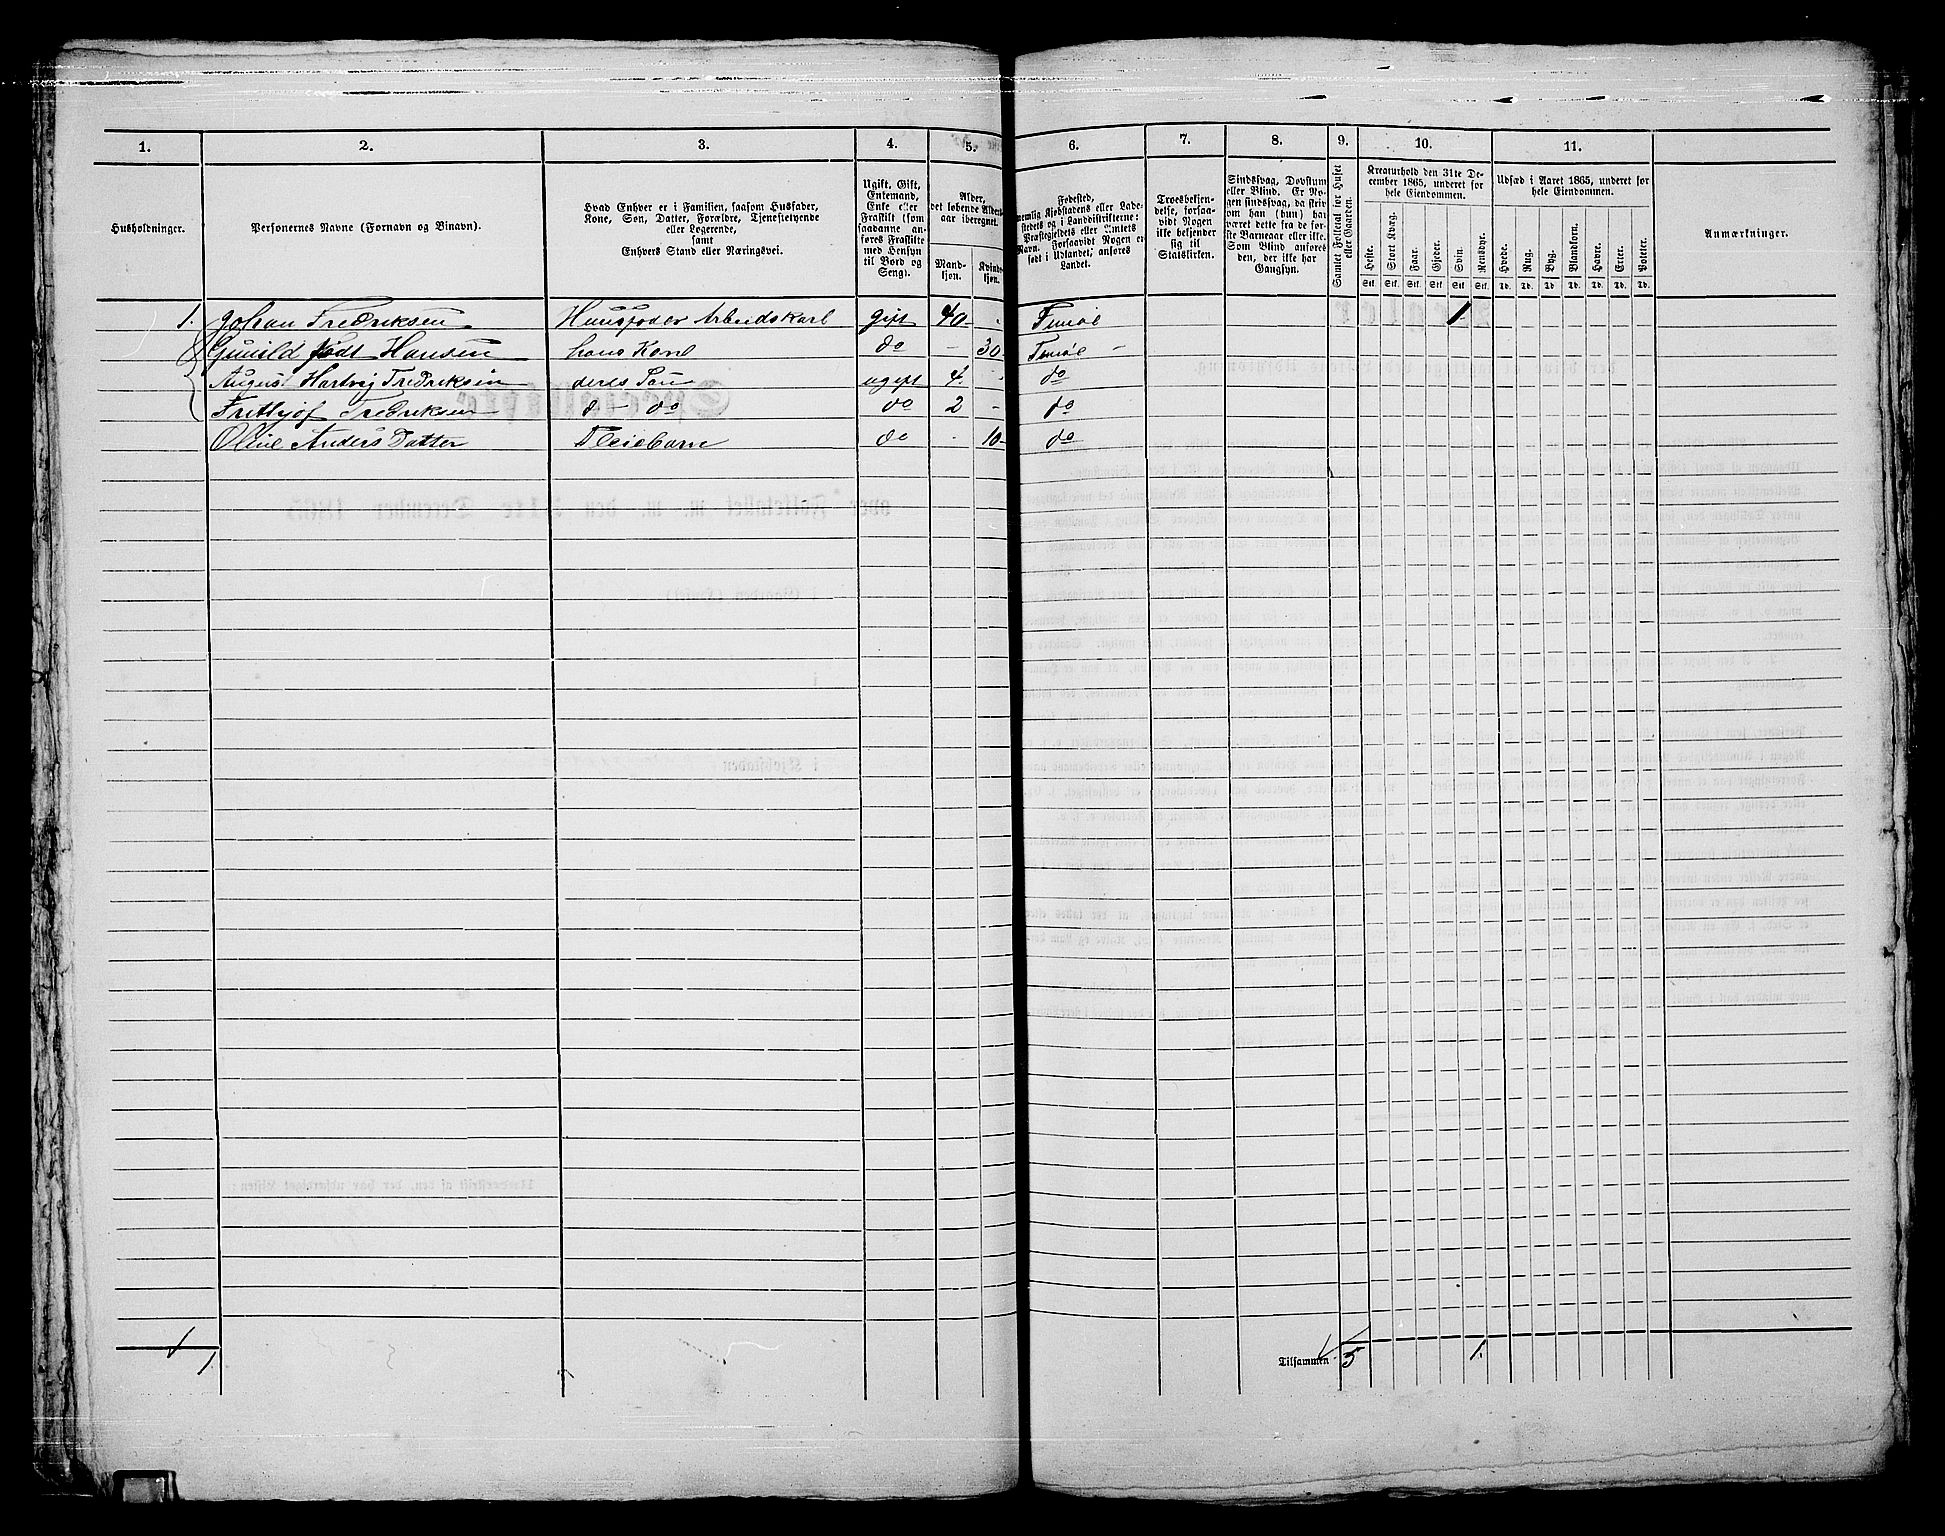 1. 2. 3. 4. 5. 6. 7. 8. 9. 10. 11.
Husholdninger.
Personernes Navne (Fornavn og Binavn).
Hvad Enhver er i Familien, saasom Husfader,
Kone, Søn, Datter, Forældre, Tjenestetyende
eller Logerende,
samt
Enhvers Stand eller Næringsvei.
Ugift, Gift,
Enkemand,
Enke eller
Fraskilt (som
saadanne an-
føres Fraskilte
med Hensyn
til Bord og
Seng).
Alder,
det løbende Alders-
aar iberegnet.
Mand-
kjøn.
Kvinde-
kjøn.
Fødested,
nemlig Kjøbstadens eller Lade-
stedets og i Landdistrikterne:
Præstegjeldets eller Amtets
Navn. Forsaavidt Nogen er
født i Udlandet, anføres
Landet.
Troesbekjen-
delse, forsaa-
vidt Nogen
ikke bekjender
sig til
Statskirken.
Sindssvag, Døvstum
eller Blind. Er No-
gen sindssvag, da skriv
om han (hun) har
været dette fra de før-
ste Barneaar eller ikke.
Som Blind anføres
den, der ikke har
Gangsyn.
Samlet Folketal for Huset
eller Gaarden.
Kreaturhold den 31te De-
cember 1865, underet for
hele Eiendommen.
Heste. Stort Kvæg. Faar. Gjeder. Svin. Rensdyr.
Stk. Stk. Stk. Stk. Stk. Stk.
Udsæd i Aaret 1865, underet for
hele Eiendommen.
Hvede. Rug. Byg. Blandkorn. Havre. Erter. Poteter.
Td. Td. Td. Td. Td. Td. Td.
Anmærkninger.
1. Johan Fredriksen Huusfader Arbeidskarl gift 40 - 1
Gunild født Hansen hans Kone do - 30
August Hartvig Fredriksen deres Søn ugift 4 - do
Frithjof Fredriksen d - do do 2 - do
Oline Anders Datter Pleiebarn do - 10 do
1
Tilsammen 5 1.